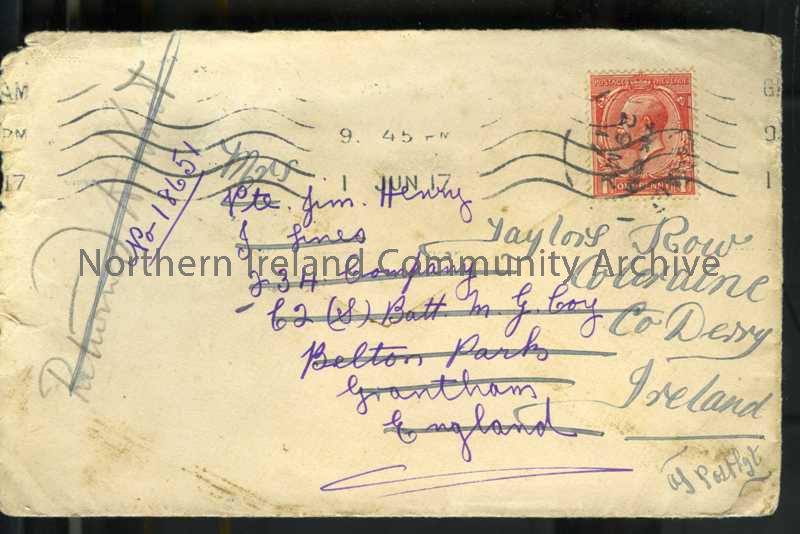 AM
PM
17
9. 45 PM
1 JUN 17
G
1
POSTAGE REVENUE
ONE PENNY
Returned
No 18651
Mrs
Pte. Jim. Henry
J Lines
234 Company
C2 (S) Batt. M. G. Coy
Belton Park
Grantham
England
Taylors Row
Coleraine
Co Derry
Ireland
Northern Ireland Community Archive